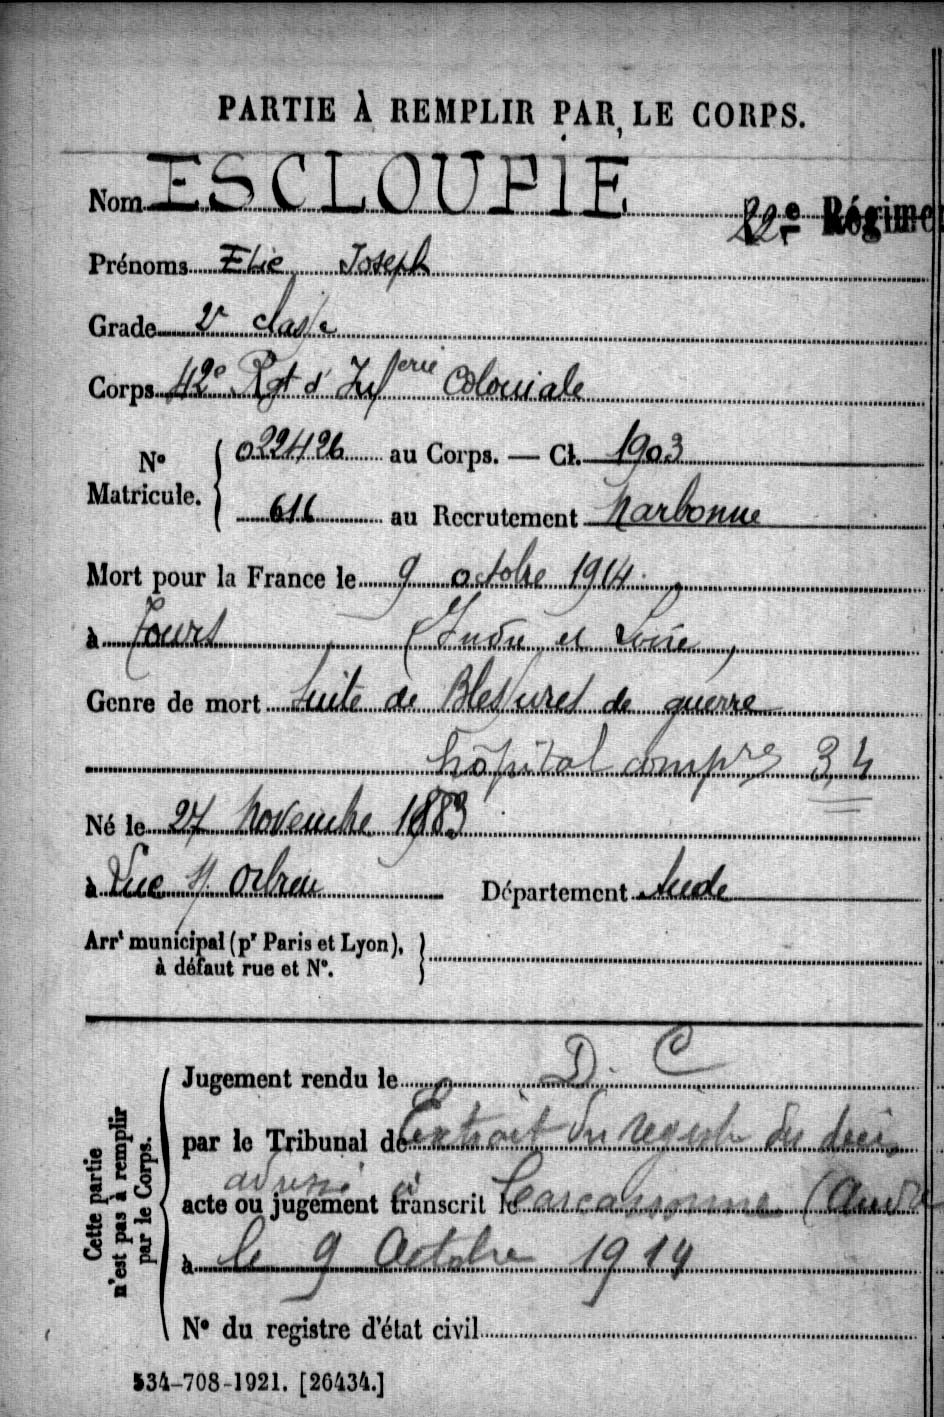 PARTIE À REMPLIR PAR LE CORPS.
Nom ESCLOUPIÉ
22e Régime
Prénoms Elie Joseph
Grade 2e classe
Corps 42e Rgt d'Inferie Coloniale
No Matricule. { 022426 au Corps. — Cl. 1903
616 au Recrutement Narbonne
Mort pour la France le 9 octobre 1914
à Tours (Indre et Loire,
Genre de mort Suite de Blessures de guerre
hôpital compre 34
Né le 27 Novembre 1883
à Département Aude
Arrt municipal (pr Paris et Lyon), }
à défaut rue et No.
Cette partie n'est pas à remplir par le Corps.
Jugement rendu le D. C
par le Tribunal de Extrait du registre des décès
adressé à
acte ou jugement transcrit le Carcassonne (Aude
à le 9 Octobre 1914
No du registre d'état civil
534-708-1921. [26434.]